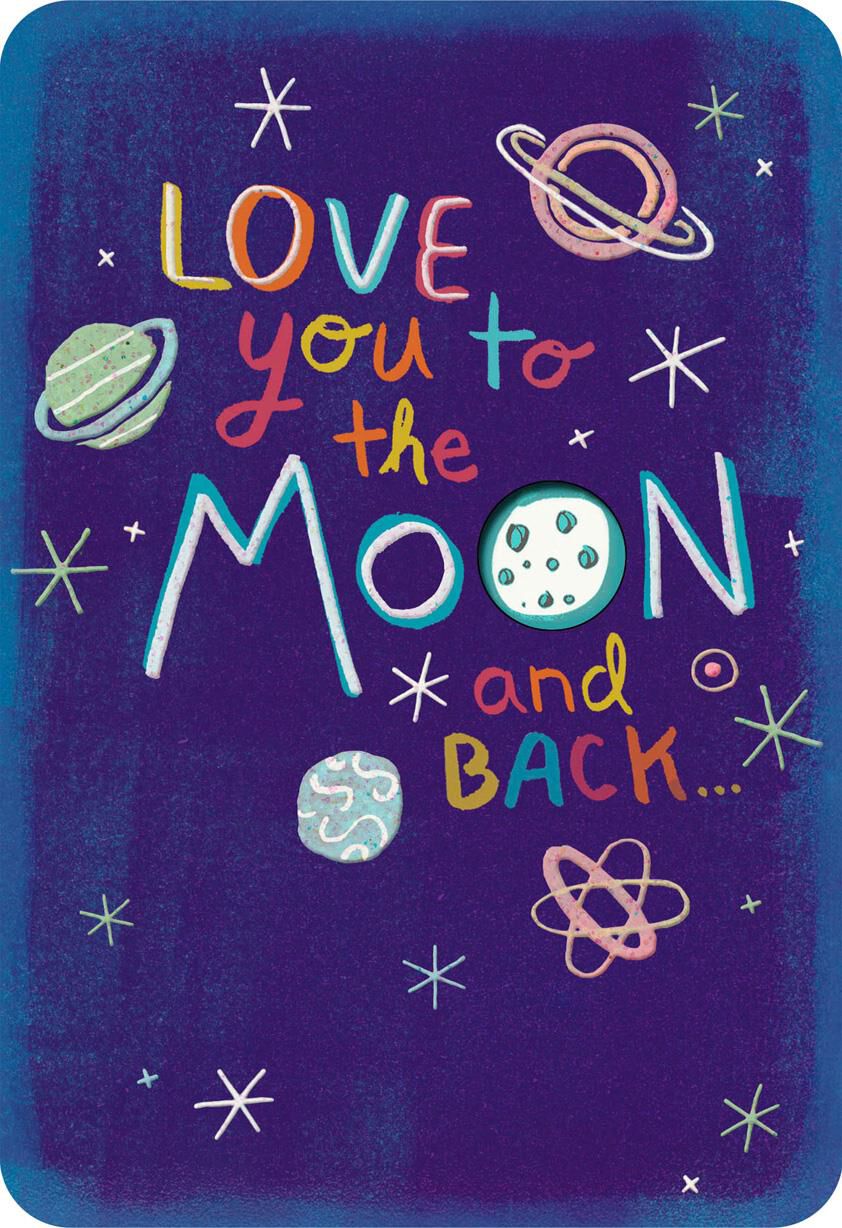 LOVE
you to
the
MOON
and
BACK...